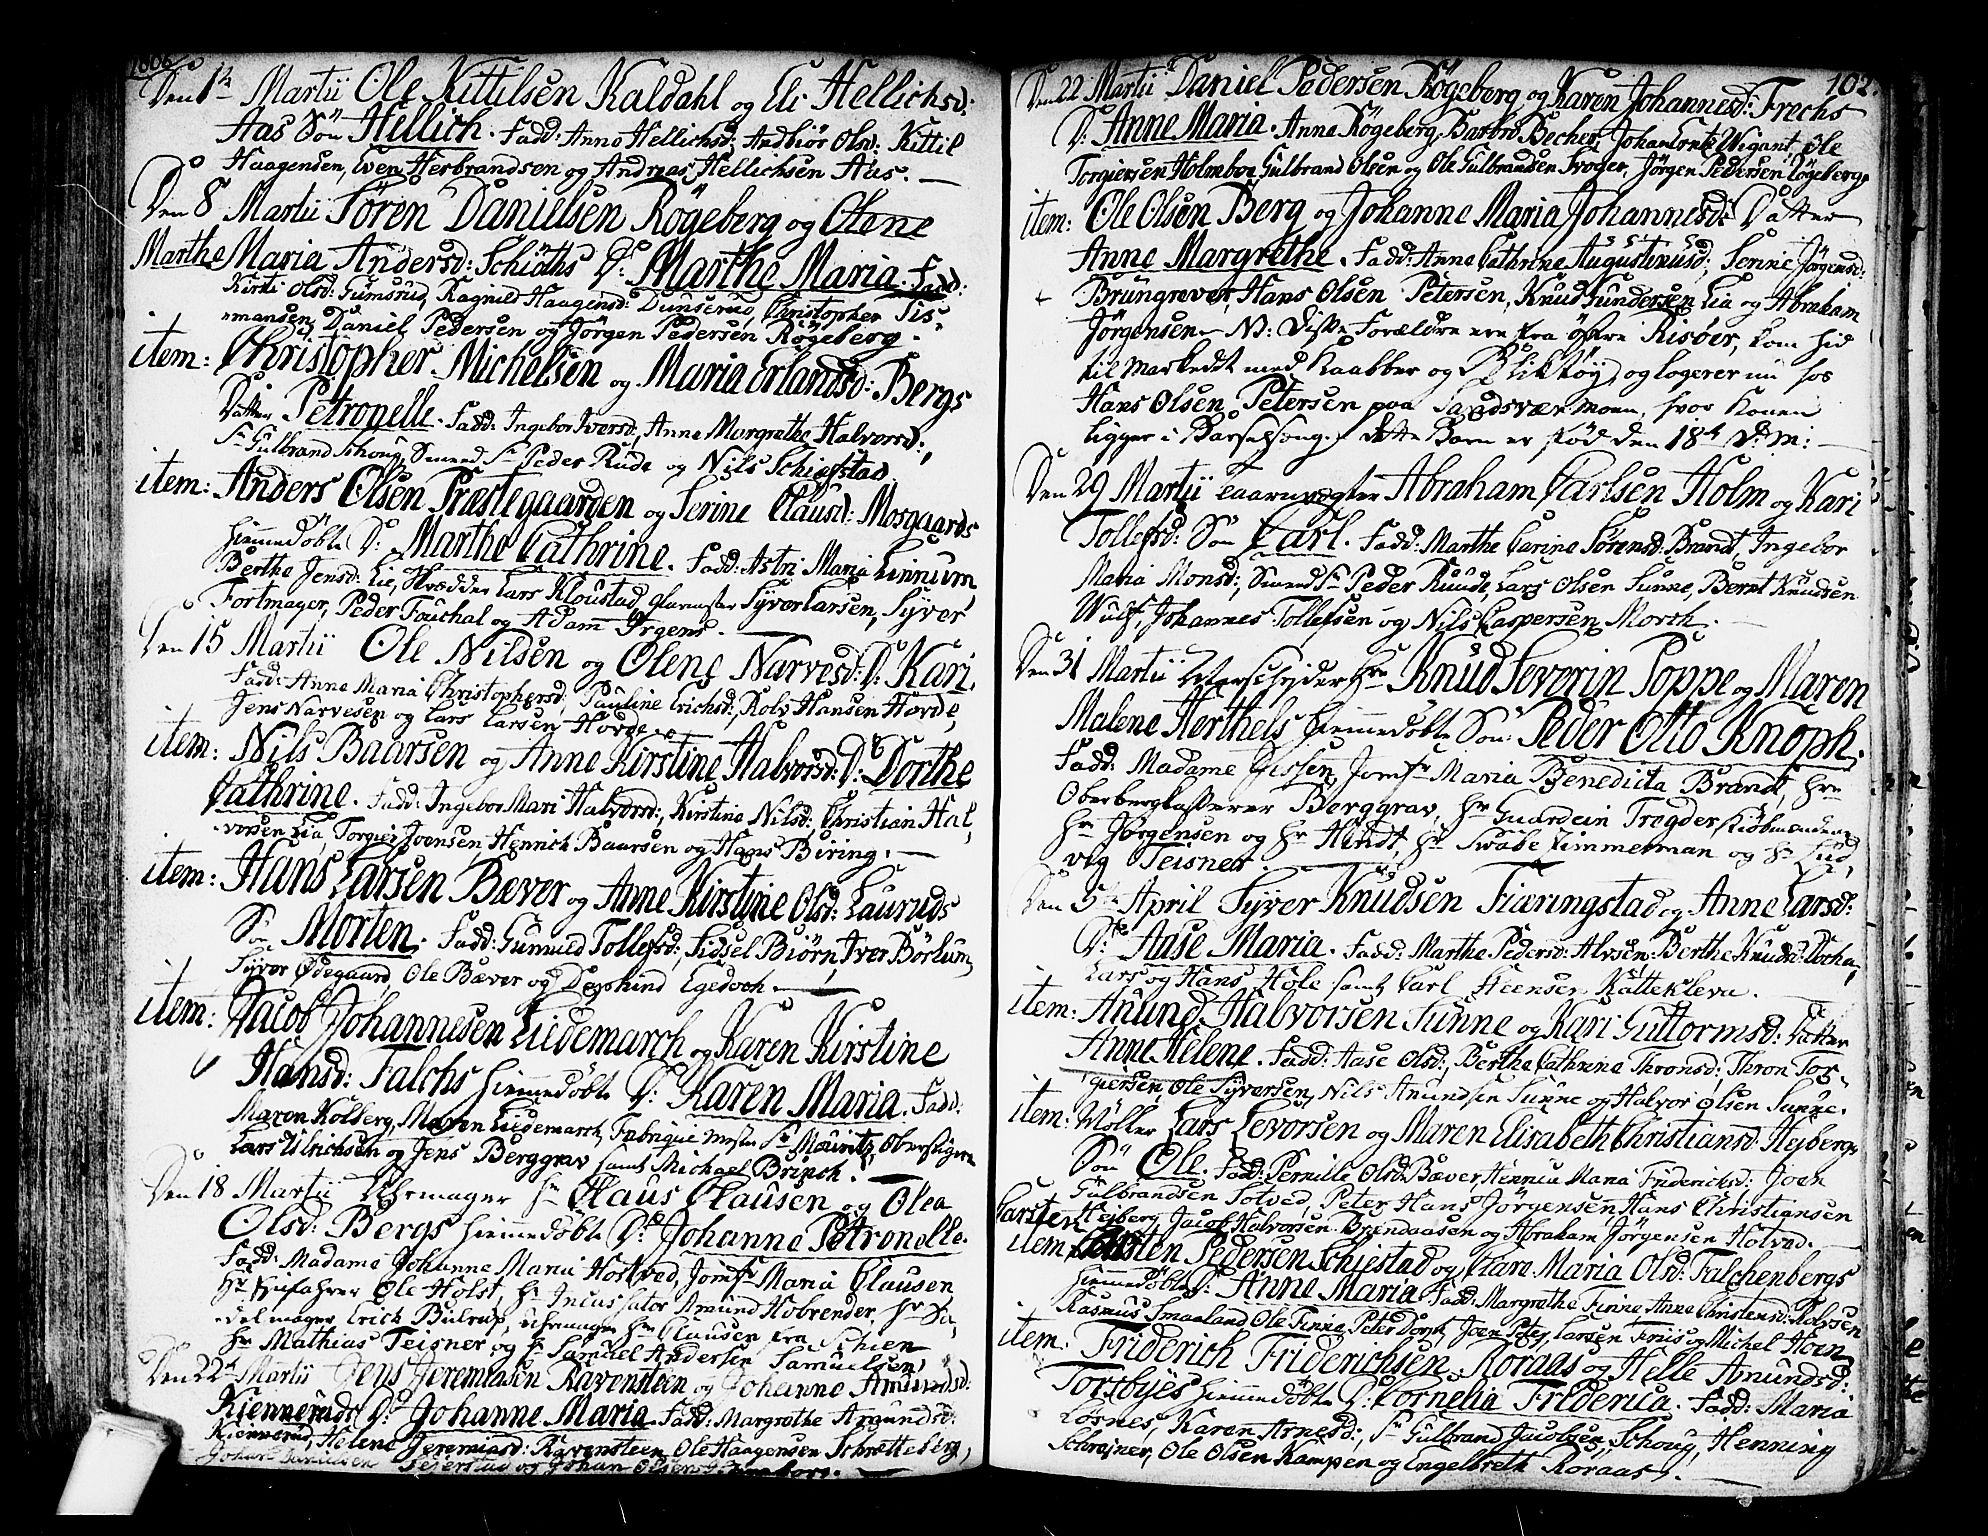 1806
Den 1te Martii Ole Kittilsen Kaldahl og Eli Hellichsd:
Aas Søn Hellich. Fadd: Anne Hellichsd: Andbiør Olsd: Kittil
Haagensen, Even Herbrandsen og Andreas Hellichsen Aas.
Den 8 Martii Søren Danielsen Røgeberg og Olene
Marthe Maria Andersd: Schiøths D: Marthe Maria. Fadd:
Kirsti Olsd: Gumsrud, Ragnild Haagensd: Dunserud, Christopher Sis-
mansen, Daniel Pedersen og Jørgen Pedersen Røgeberg.
item: Christopher Michelsen og Maria Erlandsd: Bergs
Datter Petronelle. Fadd: Ingebor Iversd, Anne Margrethe Halvorsd:,
Sr Gulbrand Schoug, Smeed Sr Peder Rude og Nils Schiefstad
item: Anders Olsen Præstegaarden og Serine Clausd: Mosgaards
hiemmedøbte D: Marthe Cathrine. Fadd: Astri Maria Linnum
Berthe Jensd: Lie, Lars Kloustad, Syver Larsen, Syver
Fortmager, Peder Fouchal og Adam Irgens.
Den 15 Martii Ole Nilsen og Olene Narvesd: D: Kari.
Fadd: Anne Maria Christophersd, Pauline Erichsd:, Rolv Hansen Hovde,
Jens Narvesen og Lars Larsen Hovde.
item: Nils Baarsen og Anne Kirstine Halvorsd: D: Dorthe
Cathrine. Fadd: Ingebor Mari Halvorsd:, Kirstine Nilsd: Christian Hal-
vorsen Lia, Torgier Joensen, Henrich Baarsen og Hans Biring.
item: Hans Larsen Bæver og Anne Kirstine Olsd: Lauruds
Søn Morten. Fadd: Gunnild Tollefsd:, Sidsel Biørn, Iver Børlum,
Syver Ødegaard, Ole Bæver og Egedoch.
item: Jacob Johannesen Liedemarch og Karen Kirstine
Hansd: Falchs hiemmedøbte D: Karen Maria. Fadd:
Maren Kolberg, Maren Liedemarch, Fabriqve mester Sr Mouritz, Oberstiger
Lars Ulrichsen og Jens Berggrav samt Michael Brinch.
Den 18 Martii Uhrmager Hr Claus Clausen og Olea
Olsd: Bergs hiemmedøbte D: Johanne Petronelle.
Fadd: Madame Johanne Maria Hostved, Jomfr Maria Clausen,
Ole Holst, Amund Hobrender, Hr Sa-
delmager Erich Bulrup, Uhrmager Hr Clausen fra Schien
Hr Mathias Teisner og Sr Samuel Andersen Samuelsen.
Den 22de Martii Jens Jeremiasen Ravensteen og Johanne Amundsd:
Kiennerudsd D: Johanne Maria. Fadd: Margrethe Amundsd:
Kiennerud, Helene Jeremiasd: Ravensteen, Ole Haagensen Schretteberg,
og Johan Olsen
102.
Den 22 Martii Daniel Pedersen Røgeberg og Karen Johannesd: Frechs
D: Anne Maria. Anne Røgeberg, Barbro Becher, Johan Wigant, Ole
Torgiersen Holmboe, Gulbrand Olsen og Ole Gulbrandsen Svoger, Jørgen Pedersen Røgeberg.
item: Ole Olsen Berg og Johanne Maria Johannesd: Datter
Anne Margrethe. Fadd: Anne Cathrine Augustinusd:, Senne Jørgensd:
Brungraver, Hans Olsen Petersen, Knud Gundersen Lia og Abraham
Jørgensen. NB: Disse Forældre ere fra Østre Risøer, kom hid
til Markedet med Kaabber og Bliktøy, og logerer nu hos
Hans Olsen Petersen paa Sandsværmoen, hvor Konen
ligger i Barselseng. Dette Barn er fød den 18de D: M:
Den 29 Martii Taarnvægter Abraham Carlsen Holm og Kari
Tollefsd: Søn Carl. Fadd: Marthe Carine Sørensd: Brandt, Ingebor
Maria Monsd:, Smeed Sr Peder Ruud, Lars Olsen Sunne, Bernt Knudsen
Wulf, Johannes Tollefsen og Nils Caspersen Morch.
Den 31 Martii Overschyder Hr Knud Severin Poppe og Maren
Malene Herthels hiemmedøbte Søn: Peder Otto Knoph.
Fadd: Madame Jessen, Jomfr Maria Benedicta Brandt, Hr
Oberbergkasserer Berggrav, Hr Guardein Trøgder, Kiøbmændene
Hr Jørgensen og Hr Hendt, Hr Swabe Zimmerman og Hr Lud-
vig Teisner.
Den 5te April Syver Knudsen Fiæringstad og Anne Larsd:
D: Aase Maria. Fadd: Marthe Pedersd: Alvsen, Berthe Knudsd:
Lars og Hans Hole samt Carl Heensen Kattekleva.
item: Anund Halvorsen Sunne og Kari Guttormsd: Datter
Anne Helene. Fadd: Aase Olsd:, Berthe Cathrine Thronsd:, Thron Tor-
giersen, Ole Syversen, Nils Anundsen Sunne og Halvor Olsen Sunne.
item: Møller Lars Levorsen og Maren Elisabeth Christiansd: Hejbergs
Søn Ole. Fadd: Pernille Olsd: Bæver, Hennica Maria Friderichsd: Joen
Gulbrandsen Totved, Peter Hans Jørgensen, Hans Christiansen
Hejberg, Jacob Halvorsen Brendaasen og Abraham Jørgensen Hotved.
Carsten
item Pedersen Schjestad og Maria Olsd: Falchenbergs
hiemmedøbte D: Anne Maria. Fadd: Margrethe Finne, Anne Christensd: Rolvsen
Rasmus Smaaland, Ole Finne, Peter Dorph, Joen Peter Larsen og Michel Hoen
item: Friderich Friderichsen Koraas og Helle Amundsd:
Torsbyes hiemmedøbte D: Cornelia Friderica. Fadd: Maria
Lørnes, Karen Arnesd:, Sr Gulbrand Jacobsen Schoug, Henning
Schreiner, Ole Olsen Kampen og Engelbreth Koraas.